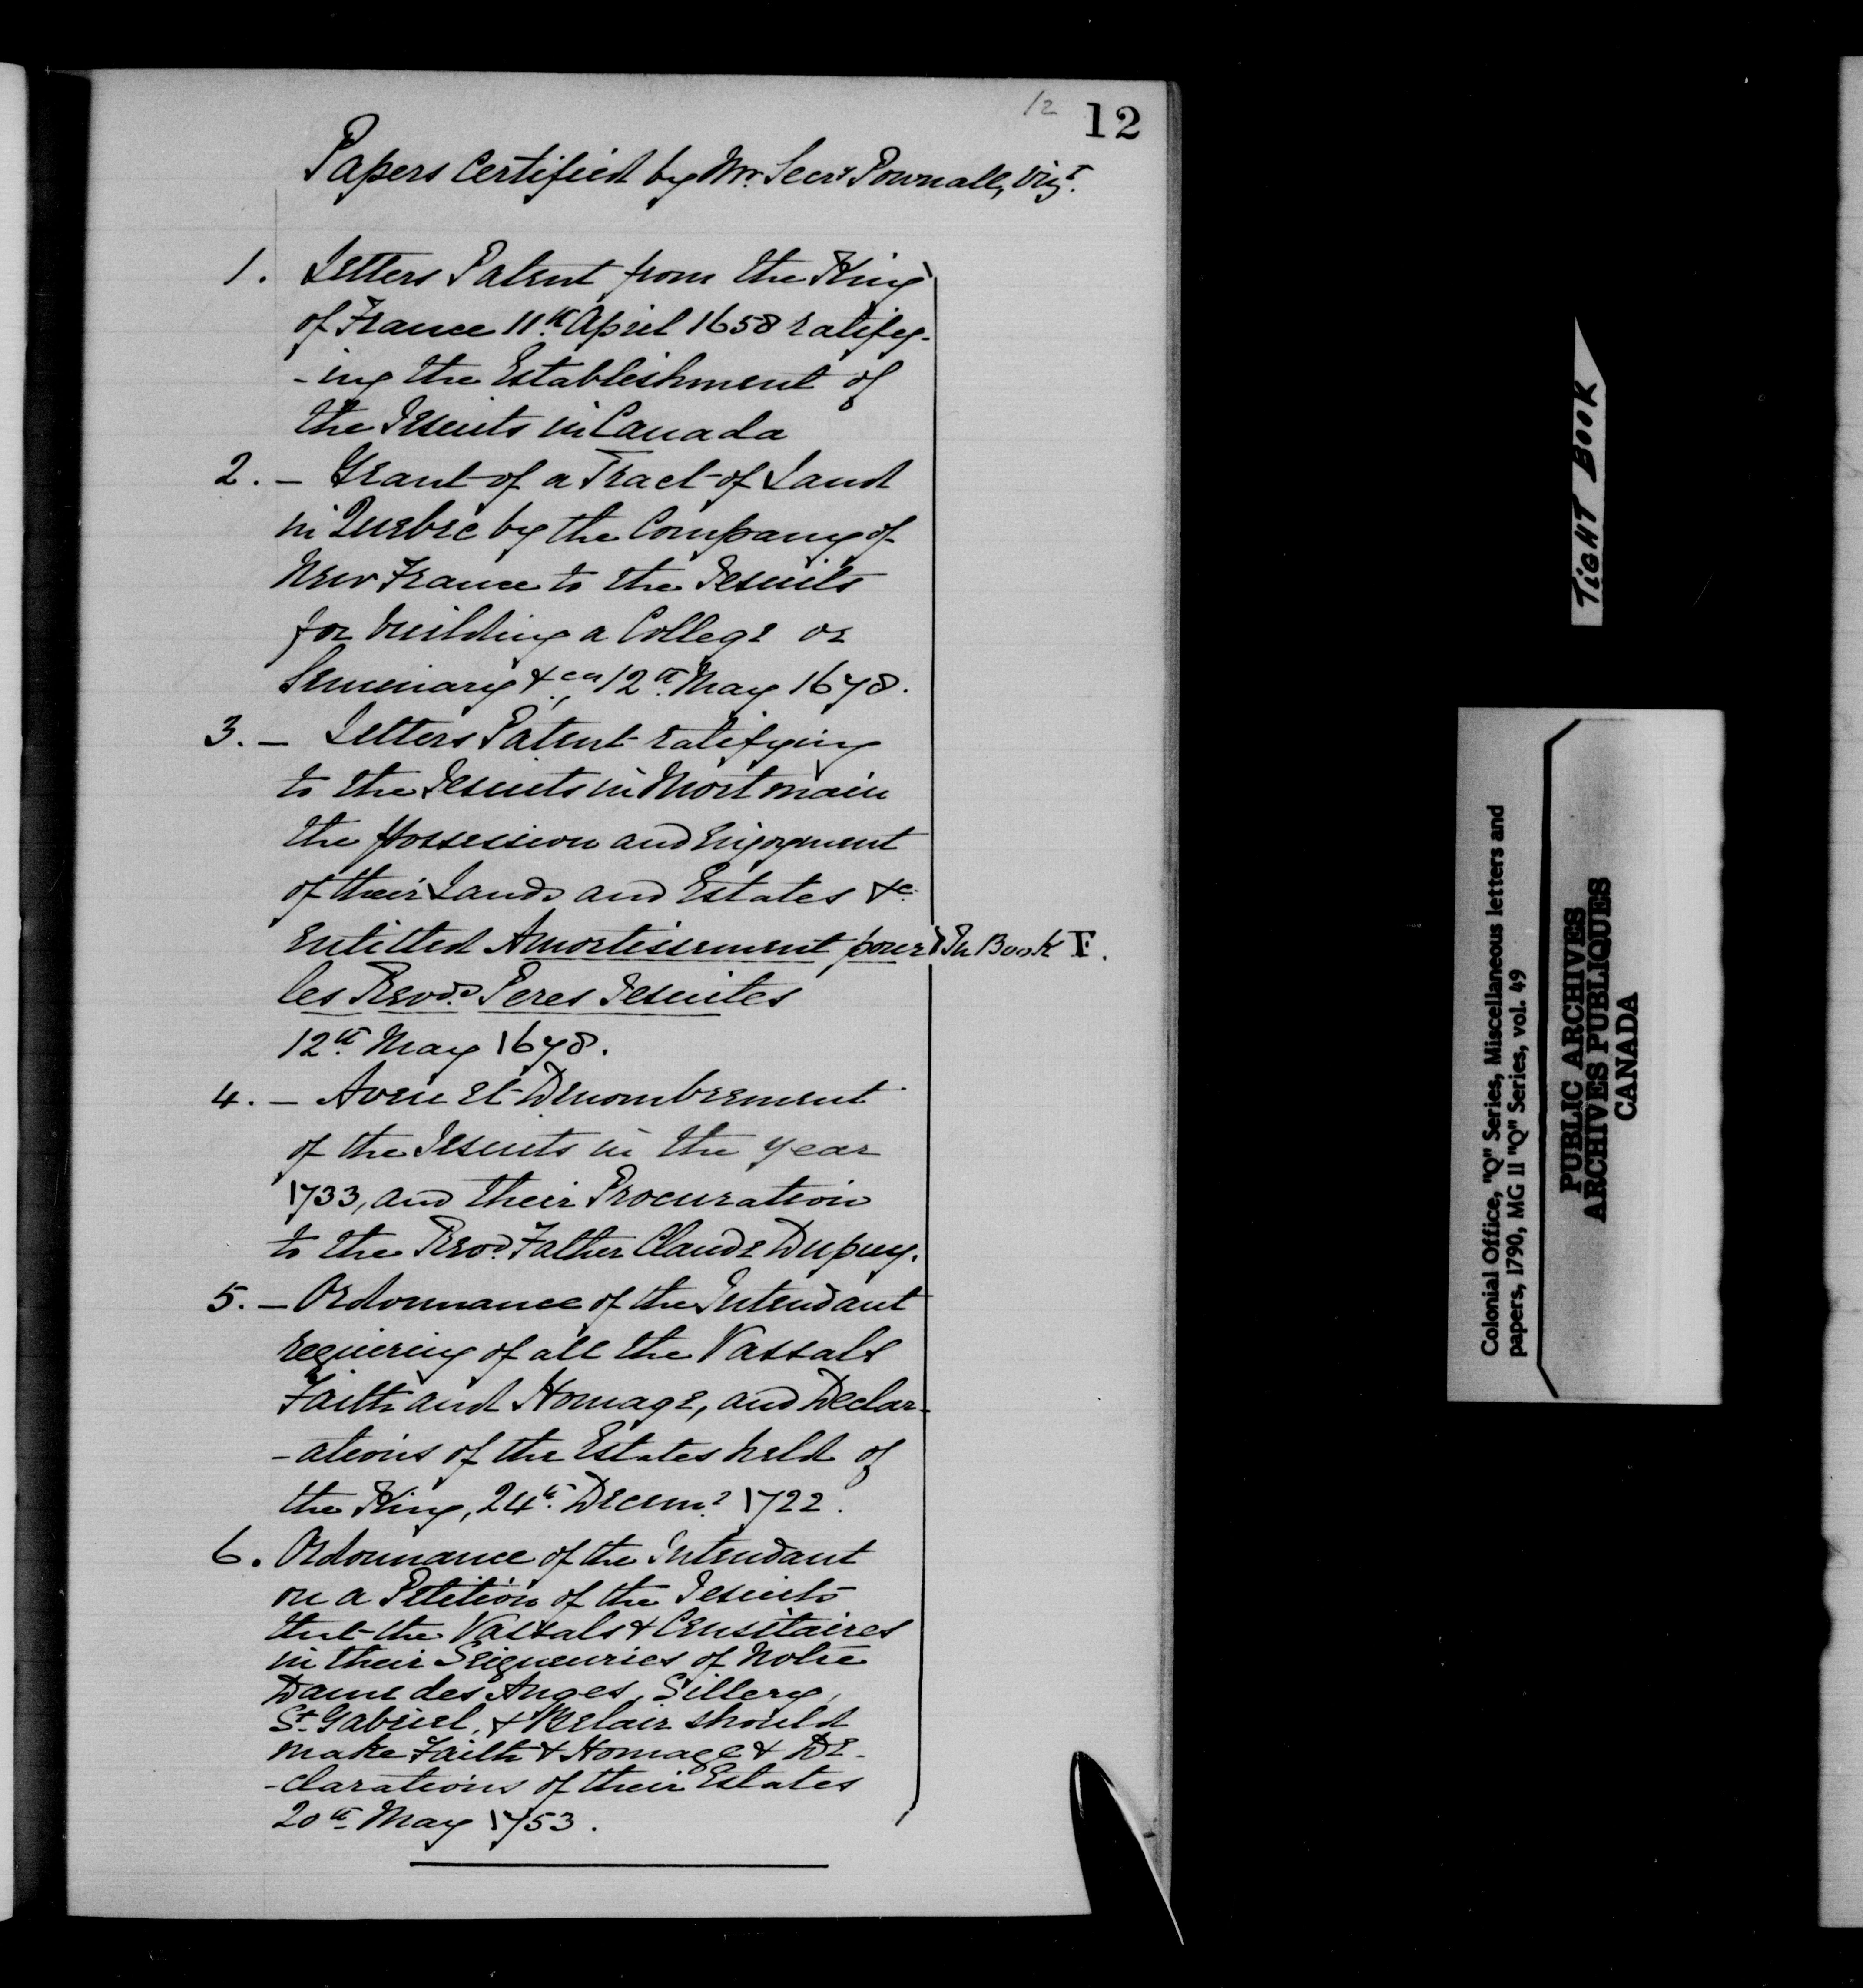 12 12
Papers certified by Mr. Secry Pownall, vizt.
1. Letters Patent from the King
of France 11th April 1658 ratify-
-ing the Establishment of
the Jesuits in Canada
2. – Grant of a Tract of Land
in Quebec by the Company of
New France to the Jesuits
for building a College or
Seminary &ca, 12th May 1678.
3. – Letters Patent ratifying
to the Jesuits in Mortmain
the possession and Enjoyment
of their Lands and Estates &c.
Entitled Amortissement pour } In Book F.
les Revds. Peres Jesuites
12th May 1678.
4. – Aveu et Denombrement
of the Jesuits in the year
1733, and their Procuration
to the Revd. Father Claude Dupuy.
5. – Ordonnance of the Intendant
requiring of all the Vassals
Faith and Homage, and Declar-
-ations of the Estates held of
the King, 24th. Decemr. 1722.
6. Ordonnance of the Intendant
on a Petition of the Jesuits
that the Vassals & Censitaires
in their Seigneuries of Notre
Dame des Anges, Sillery,
St. Gabriel, & Belair should
make Faith & Homage & De-
-clarations of their Estates
20th May 1753.
TIGHT BOOK
Colonial Office, "Q" Series, Miscellaneous letters and
papers, 1790, MG 11 "Q" Series, vol. 49
PUBLIC ARCHIVES
ARCHIVES PUBLIQUES
CANADA